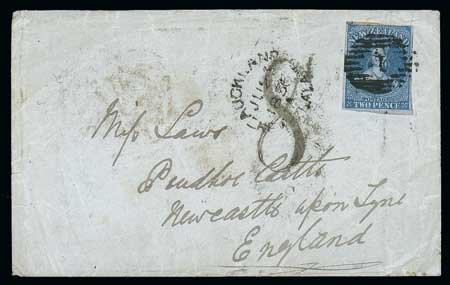 NEW ZEALAND
POSTAGE
TWO PENCE
1
AUCKLAND
JU
8
Miss Laws
Prudhoe Castle
Newcastle upon Tyne
England